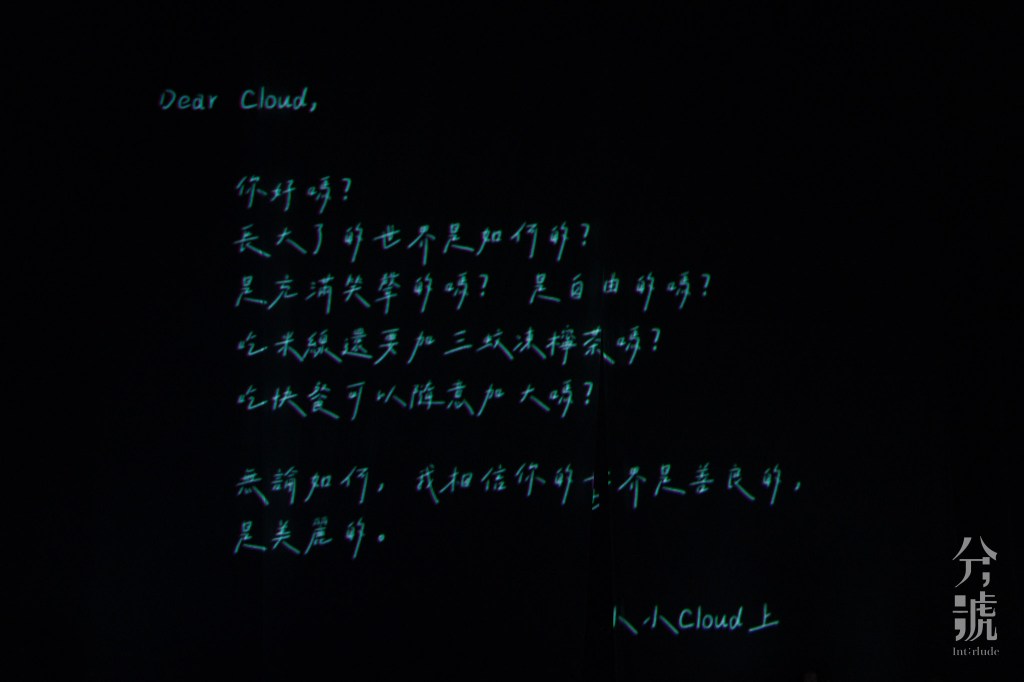 Dear Cloud,
你好嗎？
長大了的世界是如何的？
是充滿笑聲的嗎？ 是自由的嗎？
吃米線還要加三蚊凍檸茶嗎？
吃快餐可以隨意加大嗎？
無論如何，我相信你的世界是善良的，
是美麗的。
小小Cloud上
分號
Int;rlude